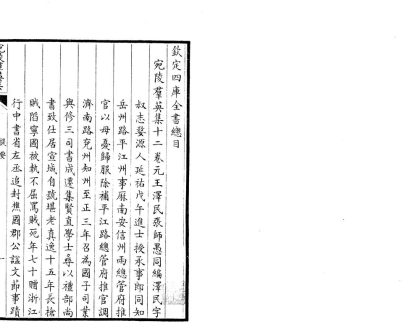 欽定四庫全書總目
宛陵羣英集十二卷元王澤民張師愚同編澤民字
叔志婺源人延祐戊午進士授承事郎同知
岳州路平江州事厯南安信州兩總管府推
官以母憂歸服除補平江路總管府推官調
濟南路兗州知州至正三年召為國子司業
與修三司書成遷集賢直學士尋以禮部尚
書致仕居宣城自號堪老真逸十五年長槍
賊陷寧國被執不屈罵賊死年七十贈浙江
行中書省左丞追封譙國郡公諡文節事蹟
提要